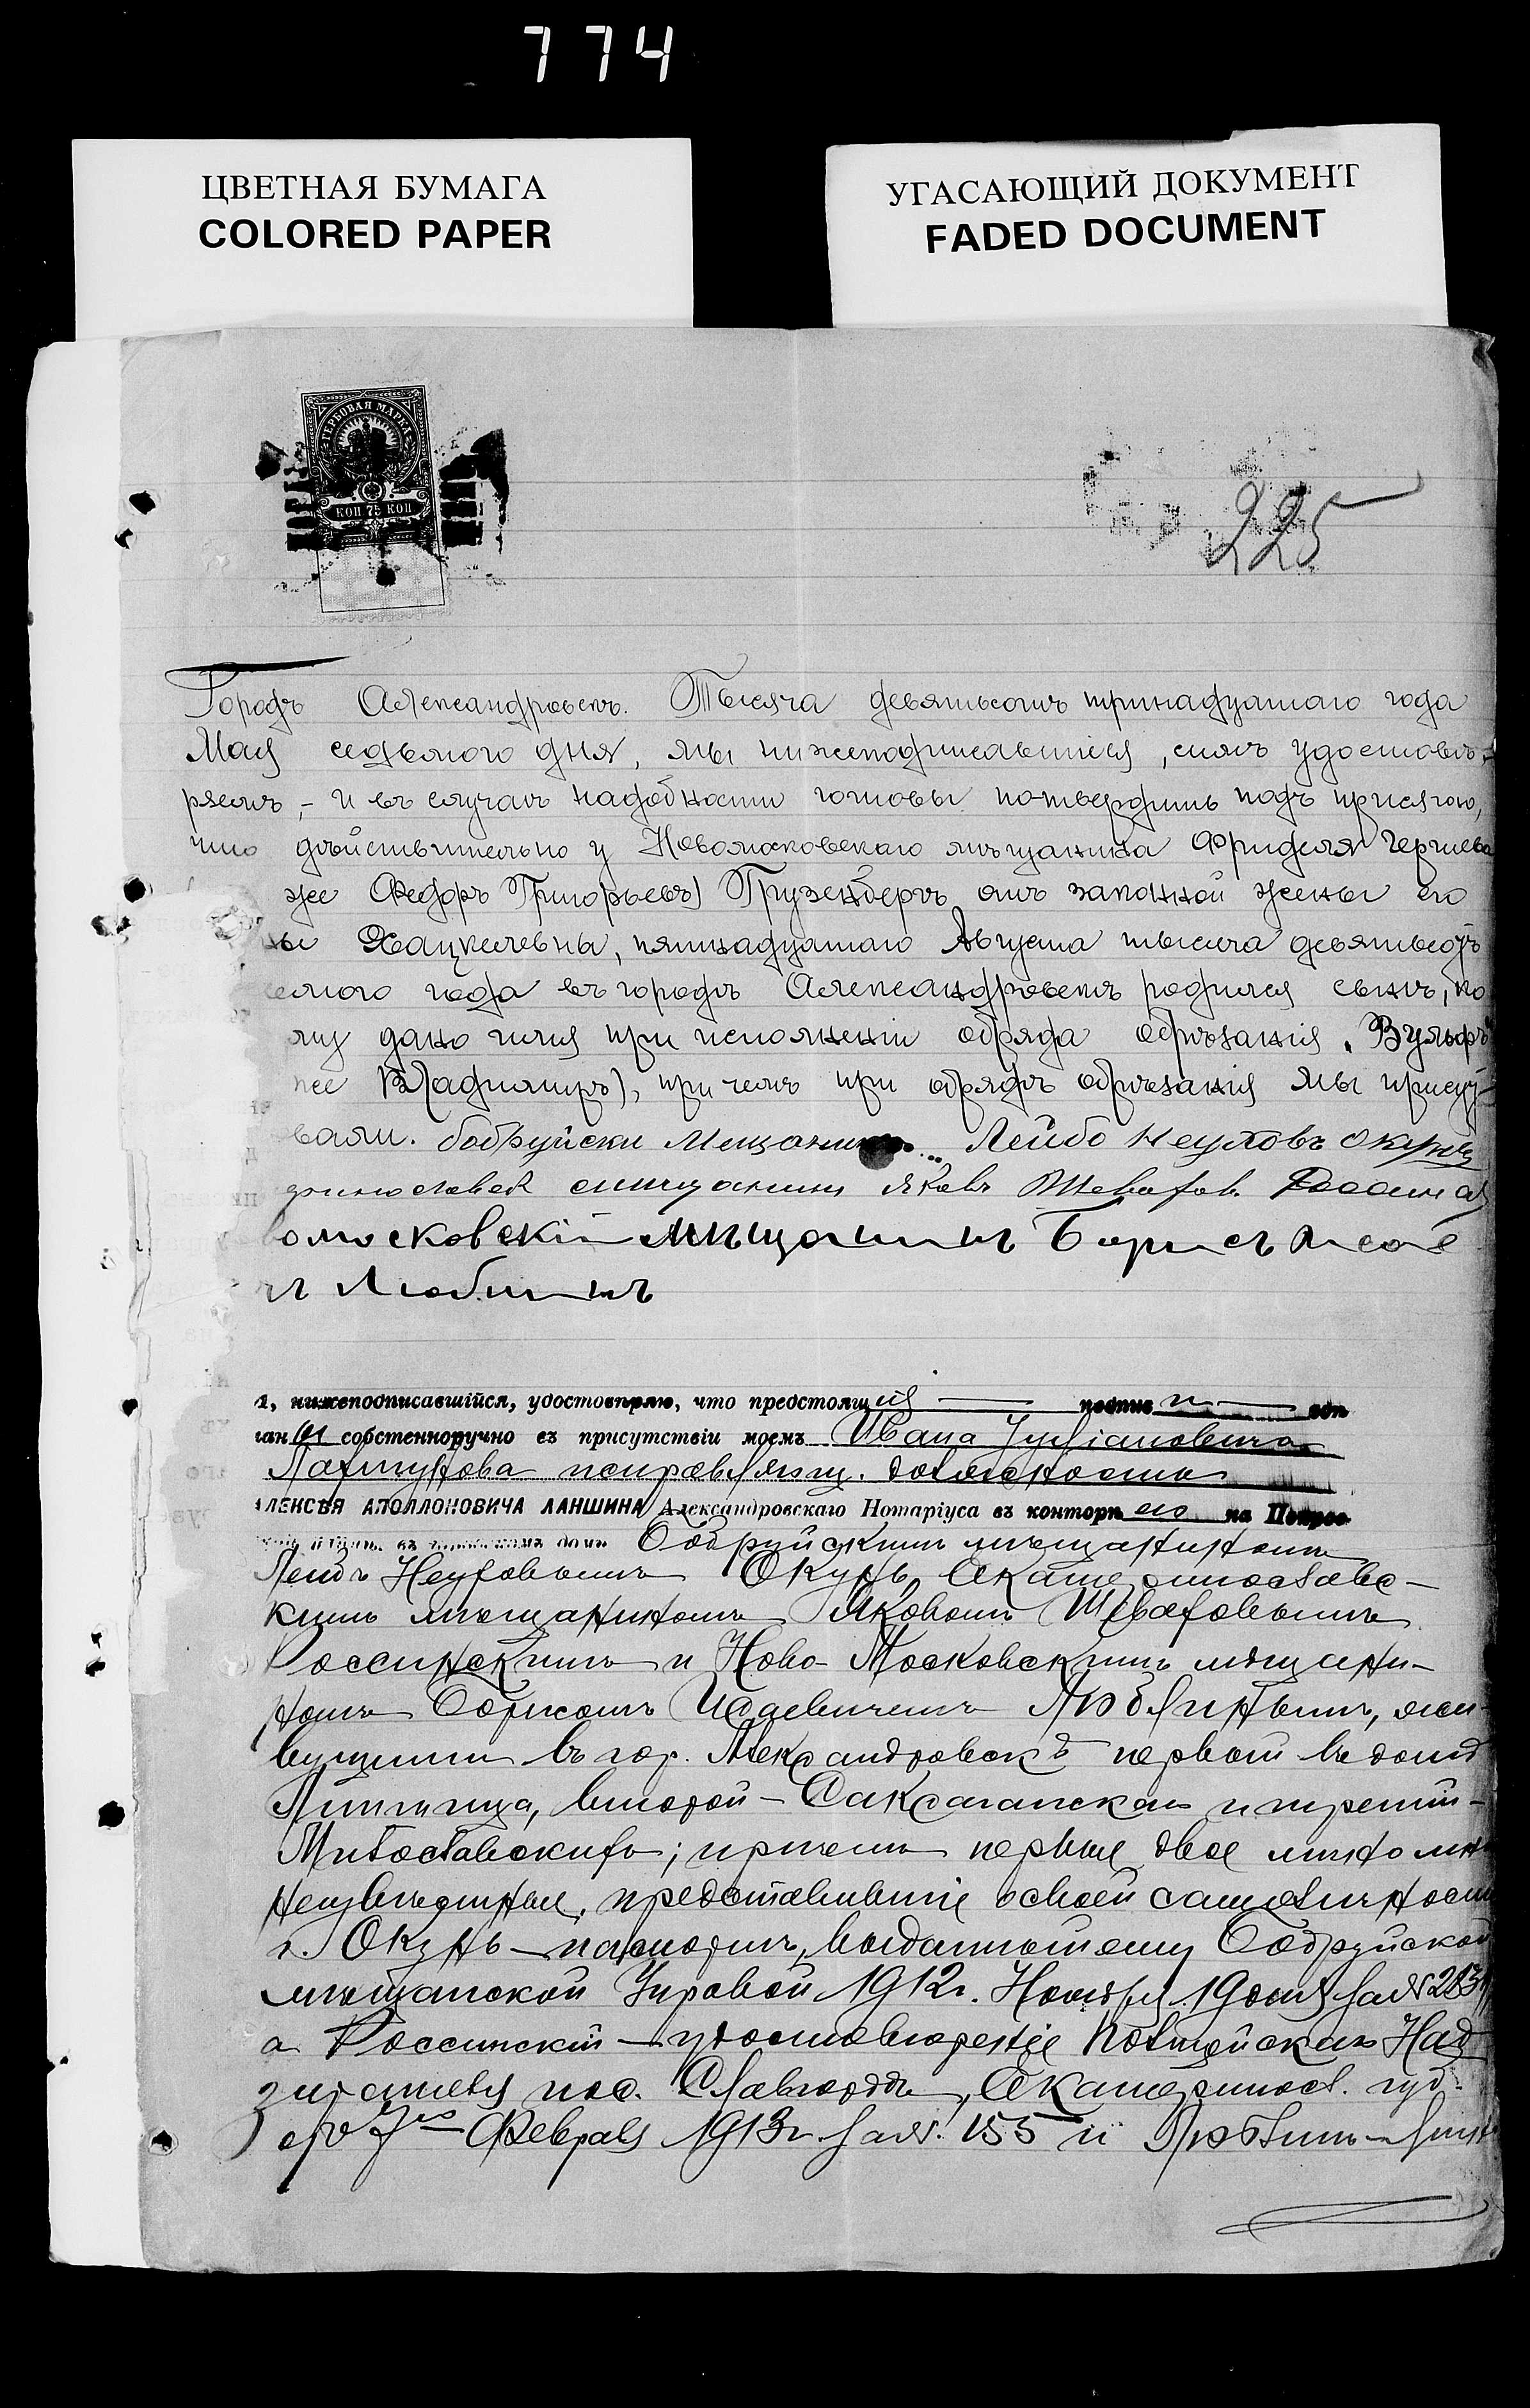 774
ЦВЕТНАЯ БУМАГА
COLORED PAPER
УГАСАЮЩИЙ ДОКУМЕНТ
FADED DOCUMENT
ГЕРБОВАЯ МАРКА
КОП 75 КОП
225
Городъ Александровскъ. Тысяча девятьсотъ тринадцатаго года
Мая седьмого дня, мы нижеподписавшіеся, симъ удостовѣ-
ряемъ, - и въ случаѣ надобности готовы подтвердить подъ присягою,
что дѣйствительно у Новомосковскаго мѣщанина Фриделя Гершева
же Федоръ Григорьевъ) Грузенбергъ отъ законной жены его
Хацкелевны, пятнадцатаго Августа тысяча девятьсотъ
года въ городѣ Александровскѣ родился сынъ, ко
му дано имя при исполненіи обряда обрѣзанія, Вульфъ
же Владимиръ), при чемъ при обрядѣ обрѣзанія мы присут-
вали. бобруйски Мещанинъ Лейбо Неуховъ Окунь
мещанинъ Яковъ Шеваховъ
омосковскій мѣщанинъ Борисъ Исае
чъ Любинъ
, нижеподписавшійся, удостовѣряю, что предстоящія подписи сдѣ
ланы собственноручно въ присутствіи моемъ Ивана Іуліановича
исправляющ. должность
АЛЕКСѢЯ АПОЛЛОНОВИЧА ЛАНШИНА Александровскаго Нотаріуса въ конторѣ его на
домѣ Бобруйскимъ мѣщаниномъ
Лейбъ Неуховымъ Окунь, Екатеринославс-
кимъ мѣщаниномъ Яковомъ Шеваховымъ
Россинскимъ и Ново-Московскимъ мѣщани-
номъ Борисомъ Исаевичемъ Любинымъ, жи-
вущими въ гор. Александровскѣ первый въ домѣ
второй - Саксаганскаго и третій -
Милославскихъ; причемъ первые двое лично мнѣ
неизвѣстные, представившіе о своей самоличности
г. Окунь - паспортъ, выданный ему Бобруйской
мѣщанской Управой 1912 г. Ноября 19 дня за №
а Россинскій - удостовѣреніе Полицейскаго Над
зирателя пос. Славгородъ, Екатеринос. губ.
отъ Февраля 1913 г. за №. 155 и Любинъ - лич